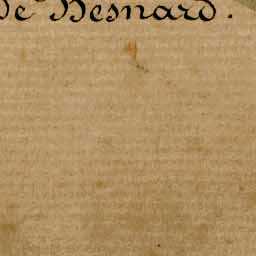 de Besnard.